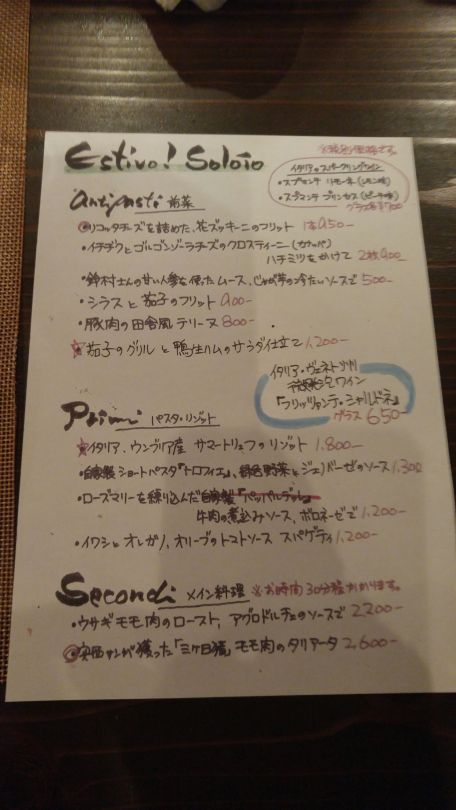 Estivo! Soloio
イタリアのスパークリングワイン
・スプマンテ リモーネ(レモン味)
・スプマンテ プリンセス(ピーチ味)
グラス各¥700
Antipasti 前菜
リコッタチーズを詰めた、花ズッキーニのフリット 1本950-
・イチヂクとゴルゴンゾーラチーズのクロスティーニ(カナッペ)
ハチミツをかけて 2枚900-
・鈴村さんの甘い人参を使ったムース、じゃが芋の冷たいソースで 500-
・シラスと茄子のフリット 900-
・豚肉の田舎風テリーヌ 800-
茄子のグリルと鴨生ハムのサラダ仕立て 1,200-
イタリア・ヴェネト州
微発泡ワイン
『フリッツァンテ・シャルドネ』
グラス 650-
Primi パスタ・リゾット
イタリア、ウンブリア産 サマートリュフのリゾット 1,800-
・自家製ショートパスタ『トロフィエ』、緑色野菜とジェノバーゼのソース 1,300
・ローズマリーを練り込んだ自家製『パッパルデッレ』
牛肉の煮込みソース、ボロネーゼで 1,200-
・イワシとオレガノ、オリーブのトマトソース スパゲティ 1,200-
Secondi メイン料理 ※お時間30分程かかります。
・ウサギモモ肉のロースト、アグロドルチェのソースで 2,200-
サンが獲った「ミケ日猪」モモ肉のタリアータ 2,600-